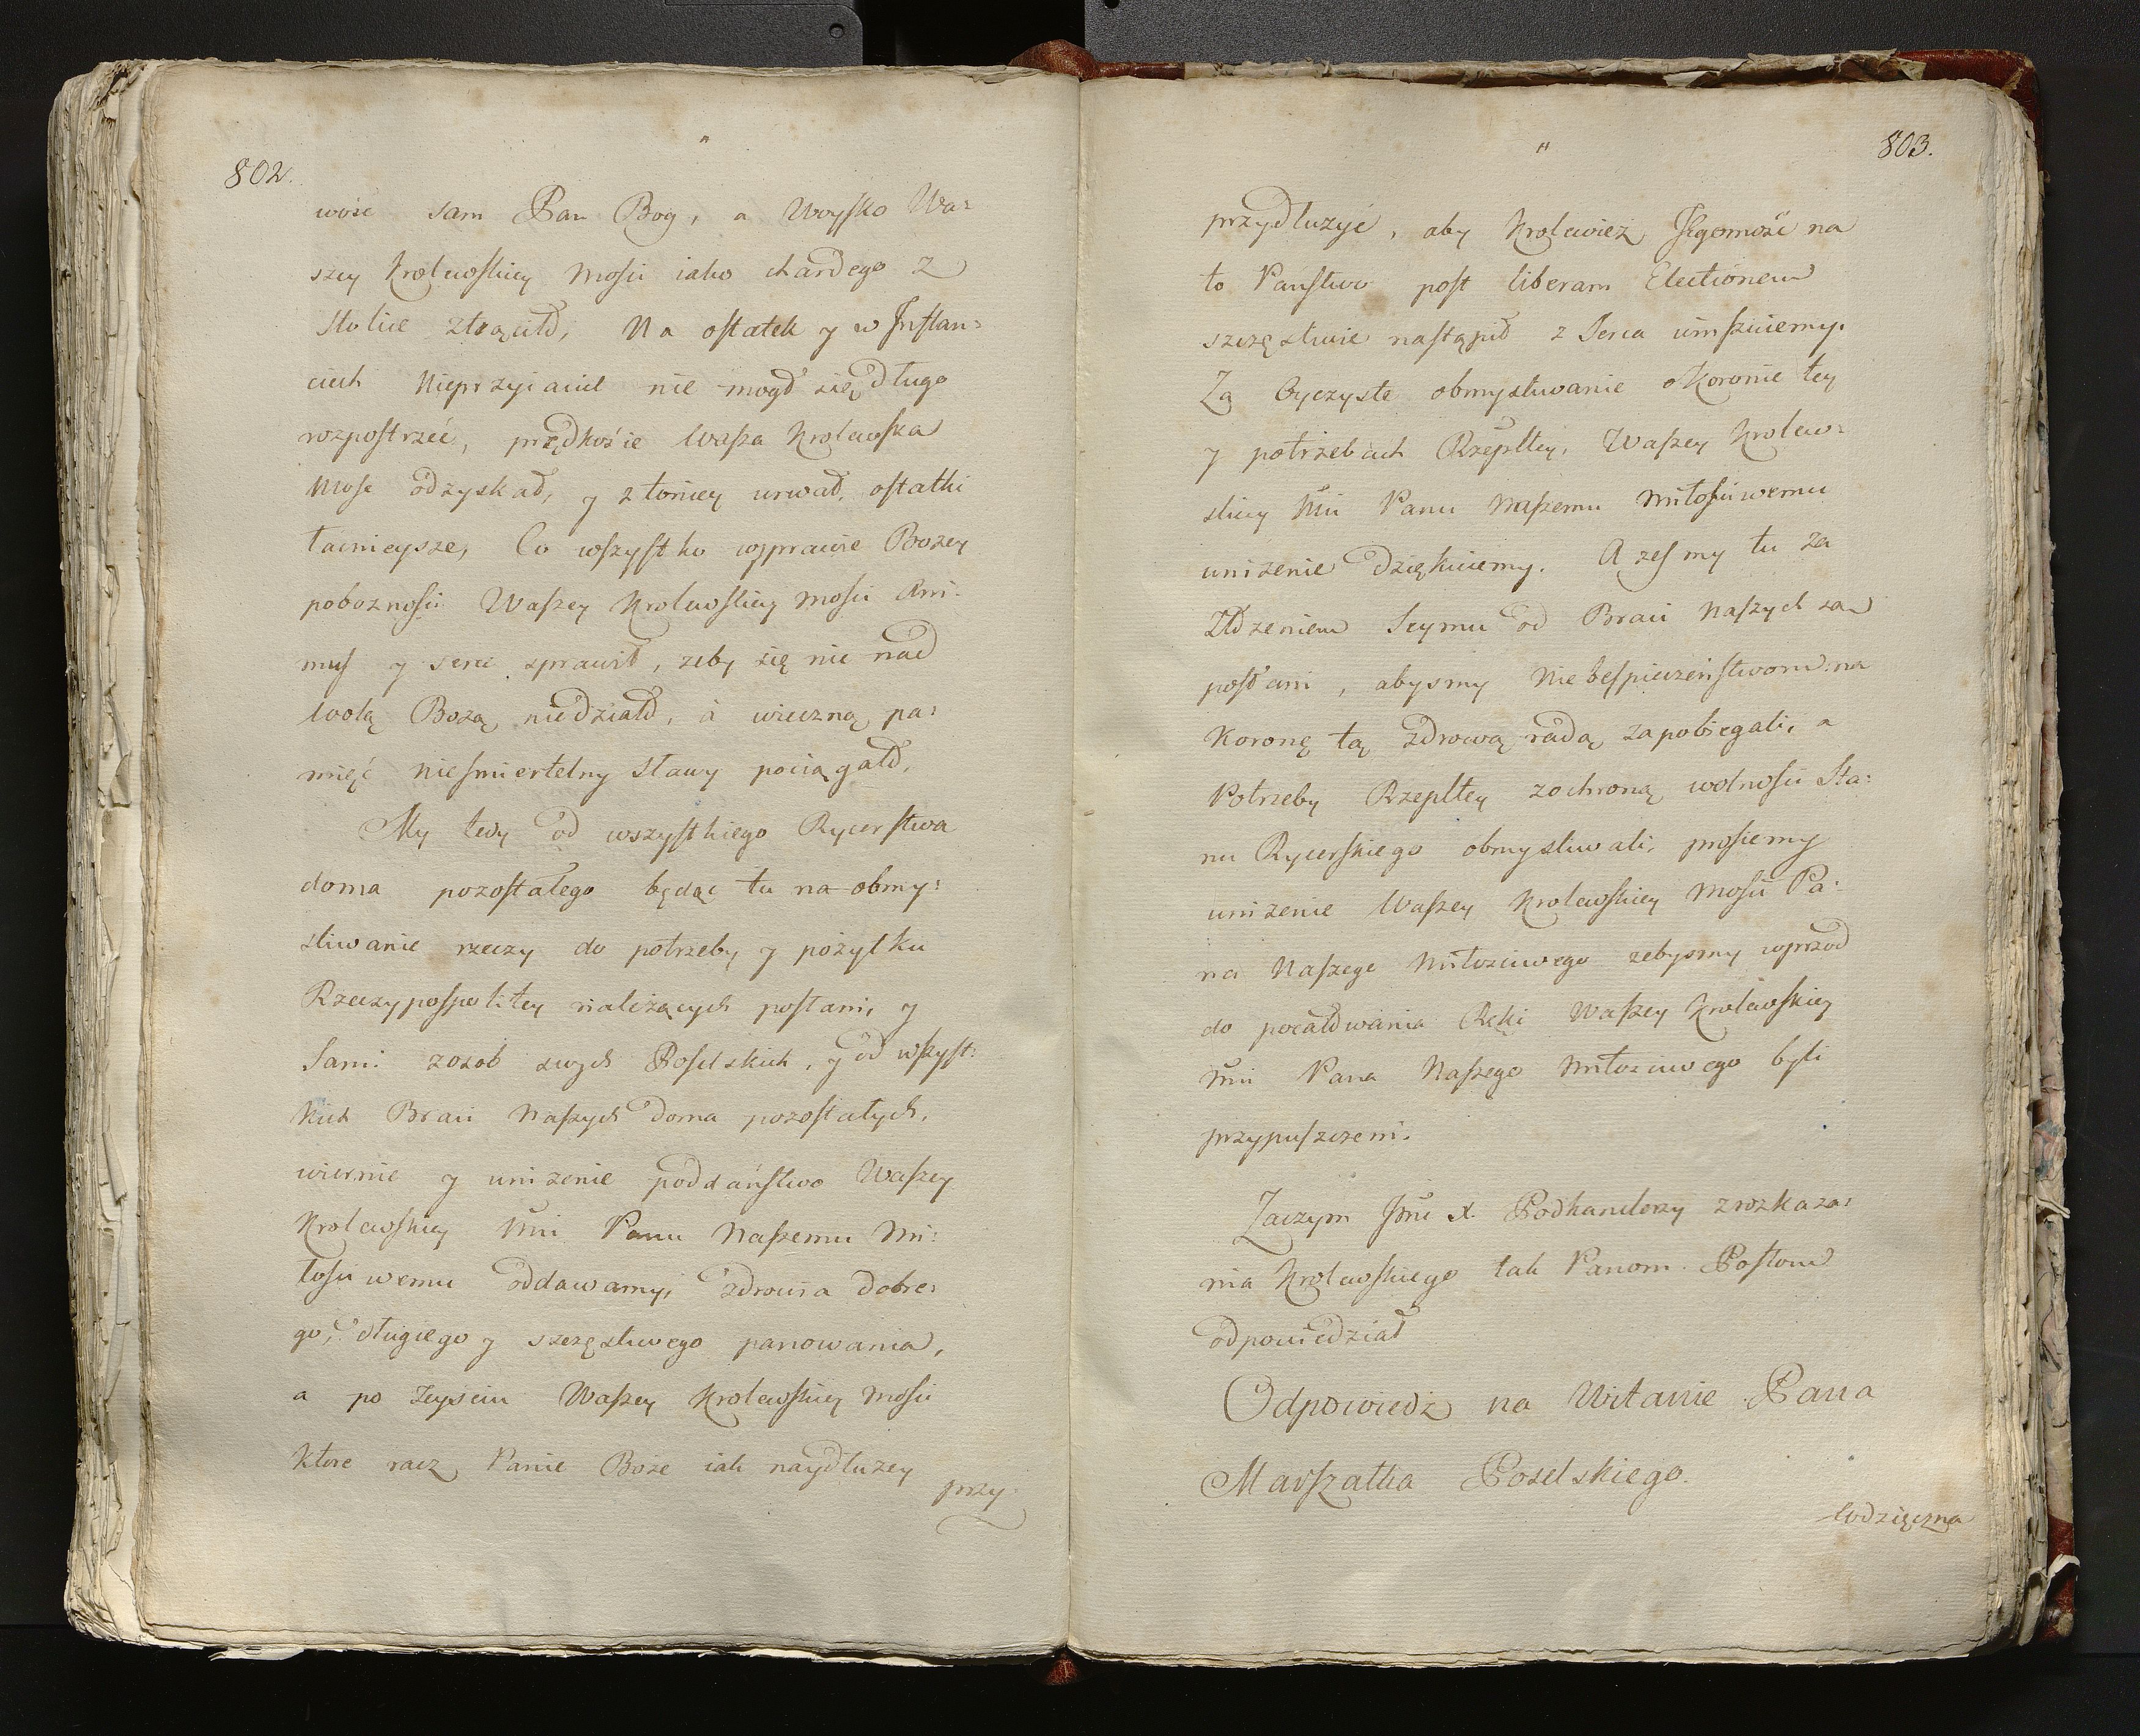 802.
wość sam Pan Bog, a Woysko Wa:
szey Krolewskiey Mosci iako chardego z
Stolice ztrącił, Na ostatek y w Inflan:
ciech Nieprzyiaciel nie mogł się długo
rozpostrzeć, prędkoście Wasza Krolewska
Mość odzyskał, y z toniey urwał, ostatki
tacnieysze, Co wszystko wyprawie Bozey
poboznosci Waszey Krolewskiey Mosci Ani-
mus y serce sprawił, zeby się nie nad
wolą Bozą niedziałd, á wieczną pa:
mięć niesmiertelny Sławy pociągałd,
My tedy od wszystkiego Rycerstwa
doma pozostałego będąc tu na obmy:
sliwanie rzeczy do potrzeby y pożytku
Rzeczypospolitey należących posłani, y
Sami zosob swych Poselskich, y od wszyst:
kich Braci Naszych doma pozostałych,
wiernie y unizenie poddaństwo Waszey
Krolewskiey Mci Panu Naszemu Mi:
łosciwemu oddawamy, zdrowia dobre:
go, długiego y szczęsliwego panowania,
a po Zeysciu Waszey Krolewskiey Mosci
ktore racz Panie Boże iak naydłuzey
przy
803.
przydłuzyć, aby Krolewicz Jegomość na
to Panstwo post liberam Electionem
szczęsliwie nastąpił z Serca umszuiemy.
Za Oyczyste obmysliwanie o Koronie tey
y potrzebach Rzeplley, Waszey Krolew:
skiey Mci Panu Naszemu Miłosciwemu
unizenie dziękuiemy. A zesmy tu za
Złdzeniem Seymu od Braci Naszych są
posłani, abysmy Niebespieczeństwom na
Koronę tą zdrową radą zapobiegali, a
Potrzeby Rzeplley zochroną wolnosci Sta:
nu Rycerskiego obmysliwali, prosiemy
unizenie Waszey Krolewskiey Mosci Pa:
na Naszego Miłosciwego zebysmy wprzod
do pocałdwania Ręki Waszey Krolewskiey
Mci Pana Naszego Miłosciwego byli
przypuszczeni.
Zaczym Jmć X. Podkanclerzy z rozkaza:
nia Krolewskiego tak Panom Posłom
odpowiedział
Odpowiedź na Witanie Pana
Marszałka Poselskiego.
Wdzięczna